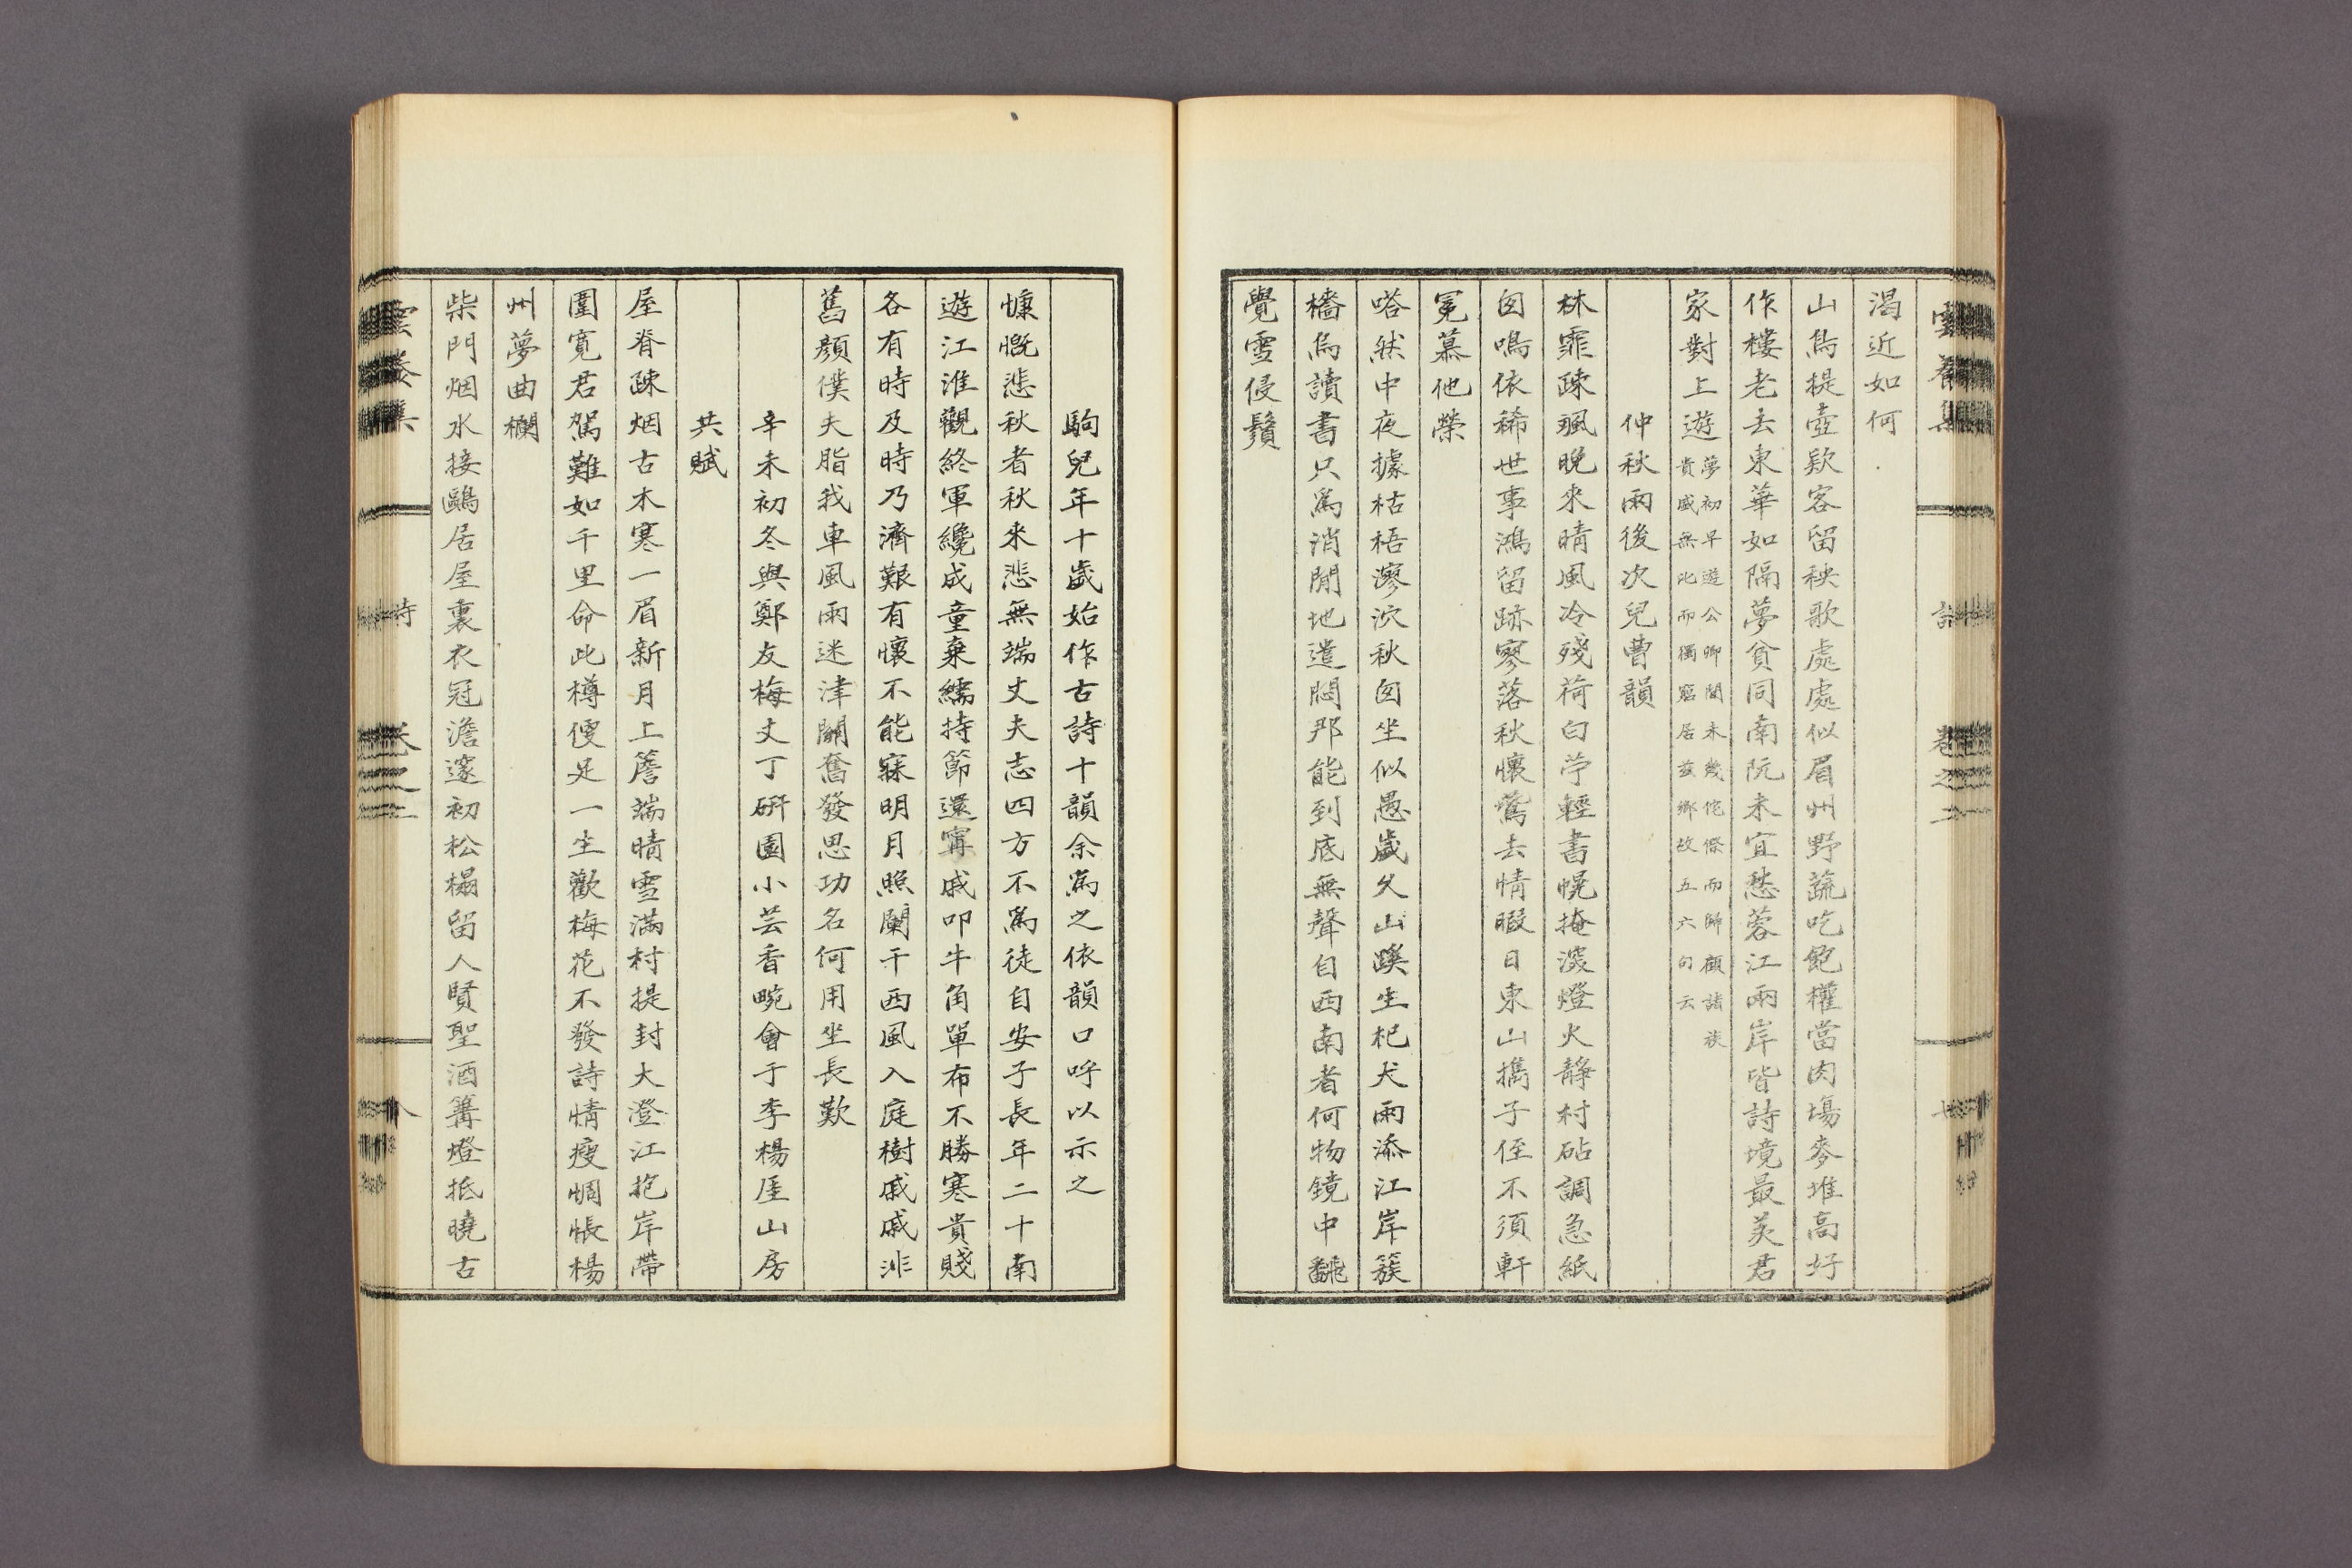 渴近如何
山鳥提壺欵客留秧歌處處似眉州野蔬吃飽權當肉塲麥堆高好
作樓老去東華如隔夢貧同南阮未宜愁蓉江兩岸皆詩境最羨君
家對上遊
夢初早遊公卿間未幾佗傺而歸顧諸族
貴盛無此而獨窮居玆鄉故五六句云
仲秋雨後次兒曹韻
林霏疎颯晚來晴風冷殘荷白苧輕書幌掩深燈火靜村砧調急紙
囱鳴依稀世事鴻留跡寥落秋懷鶯去情暇日東山携子侄不須軒
冕慕他榮
嗒然中夜據枯梧漻泬秋囱坐似愚歲久山蹊生杞犬雨添江岸簇
檣烏讀書只爲消閒地遣悶那能到底無聲自西南者何物鏡中飜
覺雪侵鬚
駒兒年十歲始作古詩十韻余爲之依韻口呼以示之
慷慨悲秋者秋來悲無端丈夫志四方不爲徒自安子長年二十南
遊江淮觀終軍纔成童棄繻持節還寗戚叩牛角單布不勝寒貴賤
各有時及時乃濟艱有懷不能寐明月照闌干西風入庭樹戚戚非
舊顏僕夫脂我車風雨迷津關奮發思功名何用坐長歎
辛未初冬與鄭友梅丈丁硏園小芸香畹會于李楊厓山房
共賦
屋脊疎烟古木寒一眉新月上簷端晴雪滿村提封大澄江抱岸帶
圍寬君駕難如千里命此樽便足一生歡梅花不發詩情瘦惆悵楊
州夢曲欄
柴門烟水接鷗居屋裏衣冠澹邃初松榻留人賢聖酒篝燈抵曉古
詩
卷之二
八